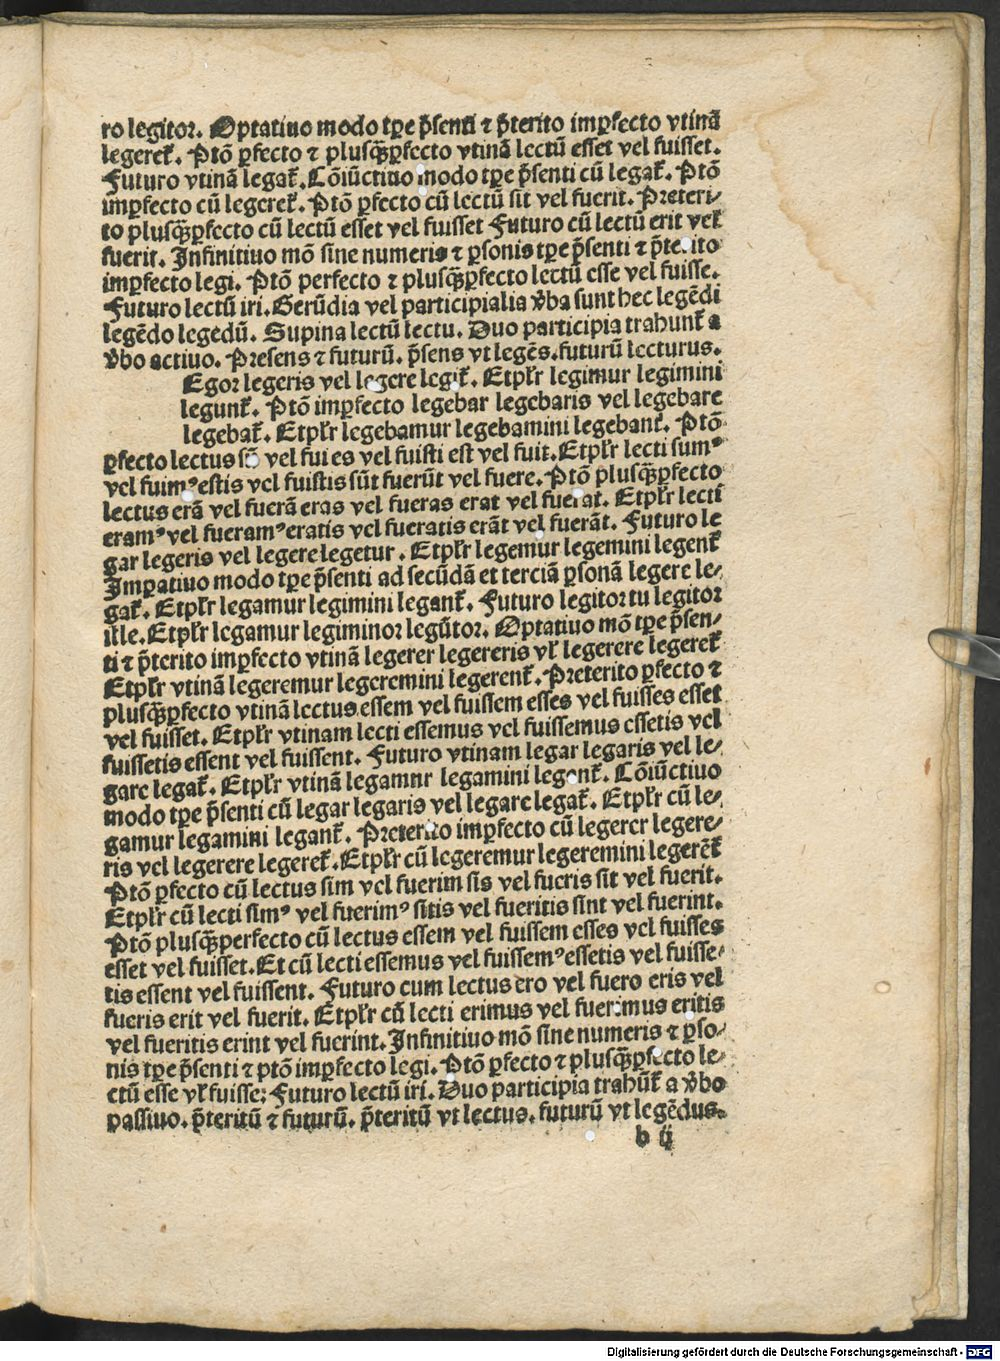 ro legitor. Optatiuo modo tꝑe p̄senti ⁊ p̄terito imꝑfecto vtinā
legeret̄. Ptō ꝑfecto ⁊ plusq̄ꝑfecto vtinā lectū esset vel fuisset.
Futuro vtinā legat̄. Cōiūctiuo modo tꝑe p̄senti cū legat̄. Ptō
imꝑfecto cū legeret̄. Ptō ꝑfecto cū lectū sit vel fuerit. Preteri⸗
to plusq̄ꝑfecto cū lectū esset vel fuisset Futuro cū lectū erit vel
fuerit. Infinitiuo mō sine numeris ⁊ ꝑsonis tꝑe p̄senti ⁊ p̄terito
imꝑfecto legi. Ptō perfecto ⁊ plusq̄ꝑfecto lectū esse vel fuisse.
Futuro lectū iri. Gerūdia vel participialia v̄ba sunt hec legēdi
legēdo legedū. Supina lectū lectu. Duo participia trahunt̄ a
v̄bo actiuo. Presens ⁊ futurū. p̄sens vt legēs. futurū lecturus.
Egor legeris vel legere legit̄. Etpl̄r legimur legimini
legunt̄. Ptō imꝑfecto legebar legebaris vel legebare
legebat̄. Etpl̄r legebamur legebamini legebant̄. Ptō
ꝑfecto lectus sū vel fui es vel fuisti est vel fuit. Etpl̄r lecti sumꝰ
vel fuimꝰ estis vel fuistis sūt fuerūt vel fuere. Ptō plusq̄ꝑfecto
lectus erā vel fuerā eras vel fueras erat vel fuerat. Etpl̄r lecti
eramꝰ vel fueramꝰ eratis vel fueratis erāt vel fuerāt. Futuro le
gar legeris vel legere legetur. Etpl̄r legemur legemini legent̄
Imꝑatiuo modo tꝑe p̄senti ad secūdā et terciā ꝑsonā legere le⸗
gat̄. Etpl̄r legamur legimini legant̄. Futuro legitor tu legitor
ille. Etpl̄r legamur legiminor legūtor. Optatiuo mō tꝑe p̄sen⸗
ti ⁊ p̄terito imꝑfecto vtinā legerer legereris vl̄ legerere legeret̄
Etpl̄r vtinā legeremur legeremini legerent̄. Preterito ꝑfecto ⁊
plusq̄ꝑfecto vtinā lectus essem vel fuissem esses vel fuisses esset
vel fuisset. Etpl̄r vtinam lecti essemus vel fuissemus essetis vel
fuissetis essent vel fuissent. Futuro vtinam legar legaris vel le⸗
gare legat̄. Etpl̄r vtinā legamur legamini legent̄. Cōiūctiuo
modo tꝑe p̄senti cū legar legaris vel legare legat̄. Etpl̄r cū le⸗
gamur legamini legant̄. Preterito imꝑfecto cū legerer legere⸗
ris vel legerere legeret̄. Etpl̄r cū legeremur legeremini legerēt̄
Ptō ꝑfecto cū lectus sim vel fuerim sis vel fueris sit vel fuerit.
Etpl̄r cū lecti simꝰ vel fuerimꝰ sitis vel fueritis sint vel fuerint.
Ptō plusq̄perfecto cū lectus essem vel fuissem esses vel fuisses
esset vel fuisset. Et cū lecti essemus vel fuissemꝰ essetis vel fuisse⸗
tis essent vel fuissent. Futuro cum lectus ero vel fuero eris vel
fueris erit vel fuerit. Etpl̄r cū lecti erimus vel fuerimus eritis
vel fueritis erint vel fuerint. Infinitiuo mō sine numeris ⁊ ꝑso⸗
nis tꝑe p̄senti ⁊ ptō imꝑfecto legi. Ptō ꝑfecto ⁊ plusq̄ꝑfecto le⸗
ctū esse vl̄ fuisse: Futuro lectū iri. Duo participia trahūt̄ a v̄bo
passiuo. p̄teritū ⁊ futurū. p̄teritū vt lectus. futurū vt legēdus.
b ij
Digitalisierung gefördert durch die Deutsche Forschungsgemeinschaft - DFG